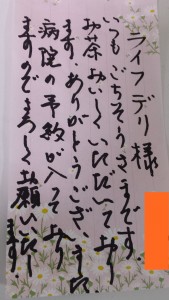 ライフデリ様
いつもごちそうさまです。
お茶おいしくいただいており
ます。ありがとうございます
病院の予約が入っており
ますのでよろしくお願いいたし
ます